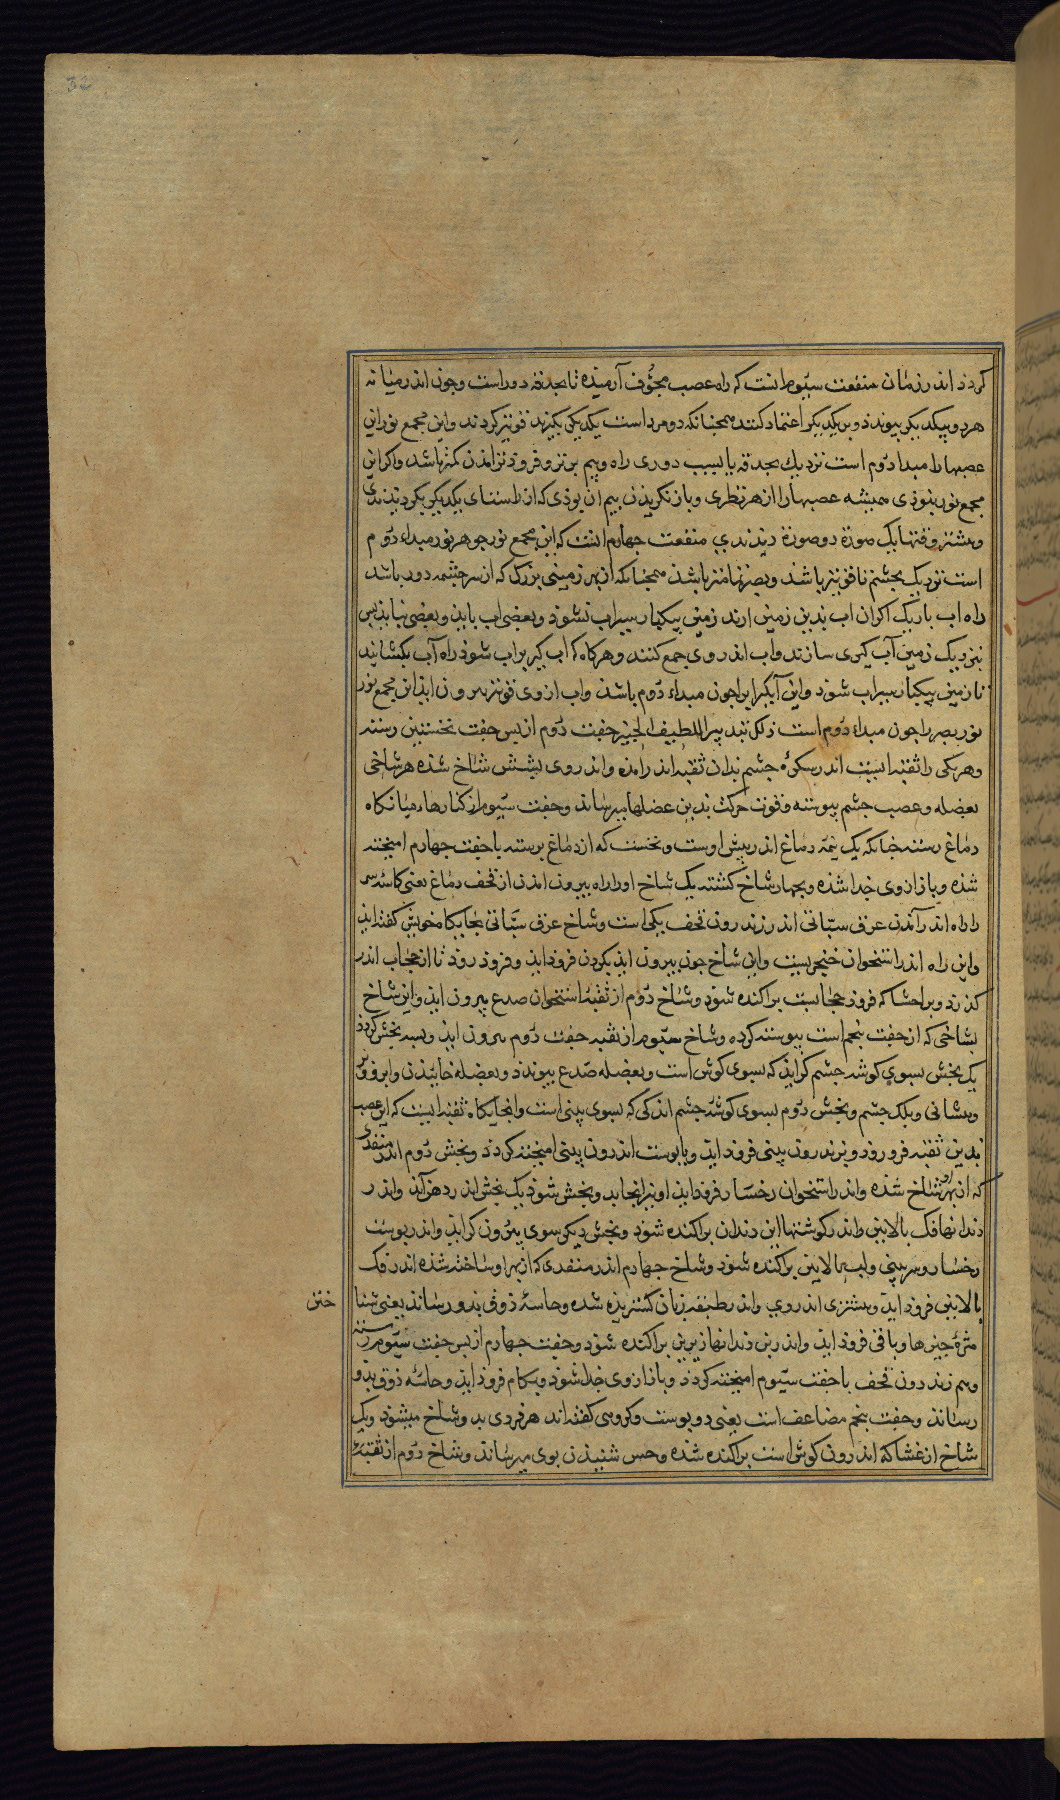 32
کردد اندر زمان منفعت سیوم انست که راه عصب مجوف آرمیده تا بحدقه دوراست و چون اندر میانه
هردو بیکدیکر بیوندد و بریکدیکر اعتماد کنند همجنانکه دو مرد است یکدیکر بکیرند قویتر کردند و این مجمع نور این
عصبها را مبدا دوم است نزدیک بحدقه تا بسبب دوری راه وهم برتر و فروتر امدن کمتر باشد و اکر این
مجمع نور نبودی همیشه عصبها را از هر نظری و باز نکریدن بیم ان بودی که از راستای یکدیکر بکردیدندی
و بیشتر وقتها یک صورة دو صورة دیدندی منفعت چهارم انست که این مجمع نور جوهر نور مبداء دوم
است نزدیک بچشم تا قویتر باشد و بصر تمامتر باشد همجنانکه از بهر زمینی بزرک که از سر چشمه دور باشد
راه اب باریک اکر ان اب بدین زمین ارند زمین بیکبار سیراب نشود و بعضی اب یابد و بعضی نیابد بس
نزدیک زمین آب کیری سازند و اب اندر وی جمع کنند و هرکاه که اب کیر براب شود راه آب بکشایند
تا زمین بیکبار سیراب شود و این آبکیر این را چون مبداء دوم باشد و اب از وی قویتر بیرون اید این مجمع نور
نور بصر را چون مبداء دوم است ذلک تدبیر اللطیف الخبیر جفت دوم از بس جفت نخستین رسته
و هریکی را ثقبه ایست اندر سکوه چشم بدان ثقبه اندر امده و اندر وی بشش شاخ شده هر شاخی
بعضله و عصب چشم بیوسته و قوت حرکت بدین عضلها میرساند و جفت سیوم از کنارها و میانکاه
دماغ رسته چنانکه یک نیمه دماغ اندر بیش اوست و نخست که از دماغ برسته با جفت چهارم امیخته
شده و باز از وی جدا شده و بچهار شاخ کشته یک شاخ اورا راه بیرون امدن از قحف دماغ یعنی کاسه سر
راه اندر آمدن عرق سباتی اندر زندرون قحف یکی است و شاخ عرق سباتی بجایکاه خویش کفته اید
و این راه اندر استخوان خنجریست و این شاخ چون بیرون اید بکردن فرود اید و فرود رود تا از حجاب اندر
کذرد و بر احشا که فرود حجابست براکنده شود و شاخ دوم از ثقبه استخوان صدع بیرون اید و این شاخ
بشاخی که از جفت بنجم است بیوسته کرده و شاخ سیوم از ثقبه جفت دوم بیرون اید و بسه بخش کردد
یک بخش بسوی کوشه چشم کراید که بسوی کوش است و بعضله صدع بیوندد و بعضله خاییدن و ابرو
و بیشانی و بلک چشم و بخش دوم بسوی کوشه چشم اندکی که بسوی بینی است و انجایکاه ثقبه ایست که این عصب
بدین ثقبه فرو رود و بزندرون بینی فرود اید و با بوست اندرون بینی امیخته کردد و بخش دوم اندر منفدی
که از بهر او شاخ شده و اندر استخوان رخسار فرود اید و نیز انجا بدو بخش شود یک بخش اندر دهن آید و اندر
دندانهافک بالایین و اندر کوشتها این دندان براکنده شود و بخش دیکر سوی بیرون کراید و اندر بوست
رخسار و سر بینی و لب بالایین براکنده شود و شاخ چهارم اندر منفدی که از بهر او ساخته شده اندر فک
بالایین فرود اید و بیشتری اندر وی و اندر طبقه زبان کسترید‌ه شده و حاسهٔ ذوق بدو رساند یعنی شنا
ختن
مزهٔ چیزها و باقی فرود اید و اندر بن دندانها زیرین براکنده شود و جفت چهارم از بس جفت سیوم رسته
و هم زندرون قحف با جفت سیوم امیخته کردد و باز از وی جدا شود و بکام فرود اید و حاسه ذوق بدو
رساند و جفت بنجم مضاعف است یعنی دو بوست و کروهی کفته اند هر فردی بدو شاخ میشود و یک
شاخ از غشا که اندرون کوش است براکنده شده و حس شنیدن بوی میرساند و شاخ دوم از ثقبهٔ